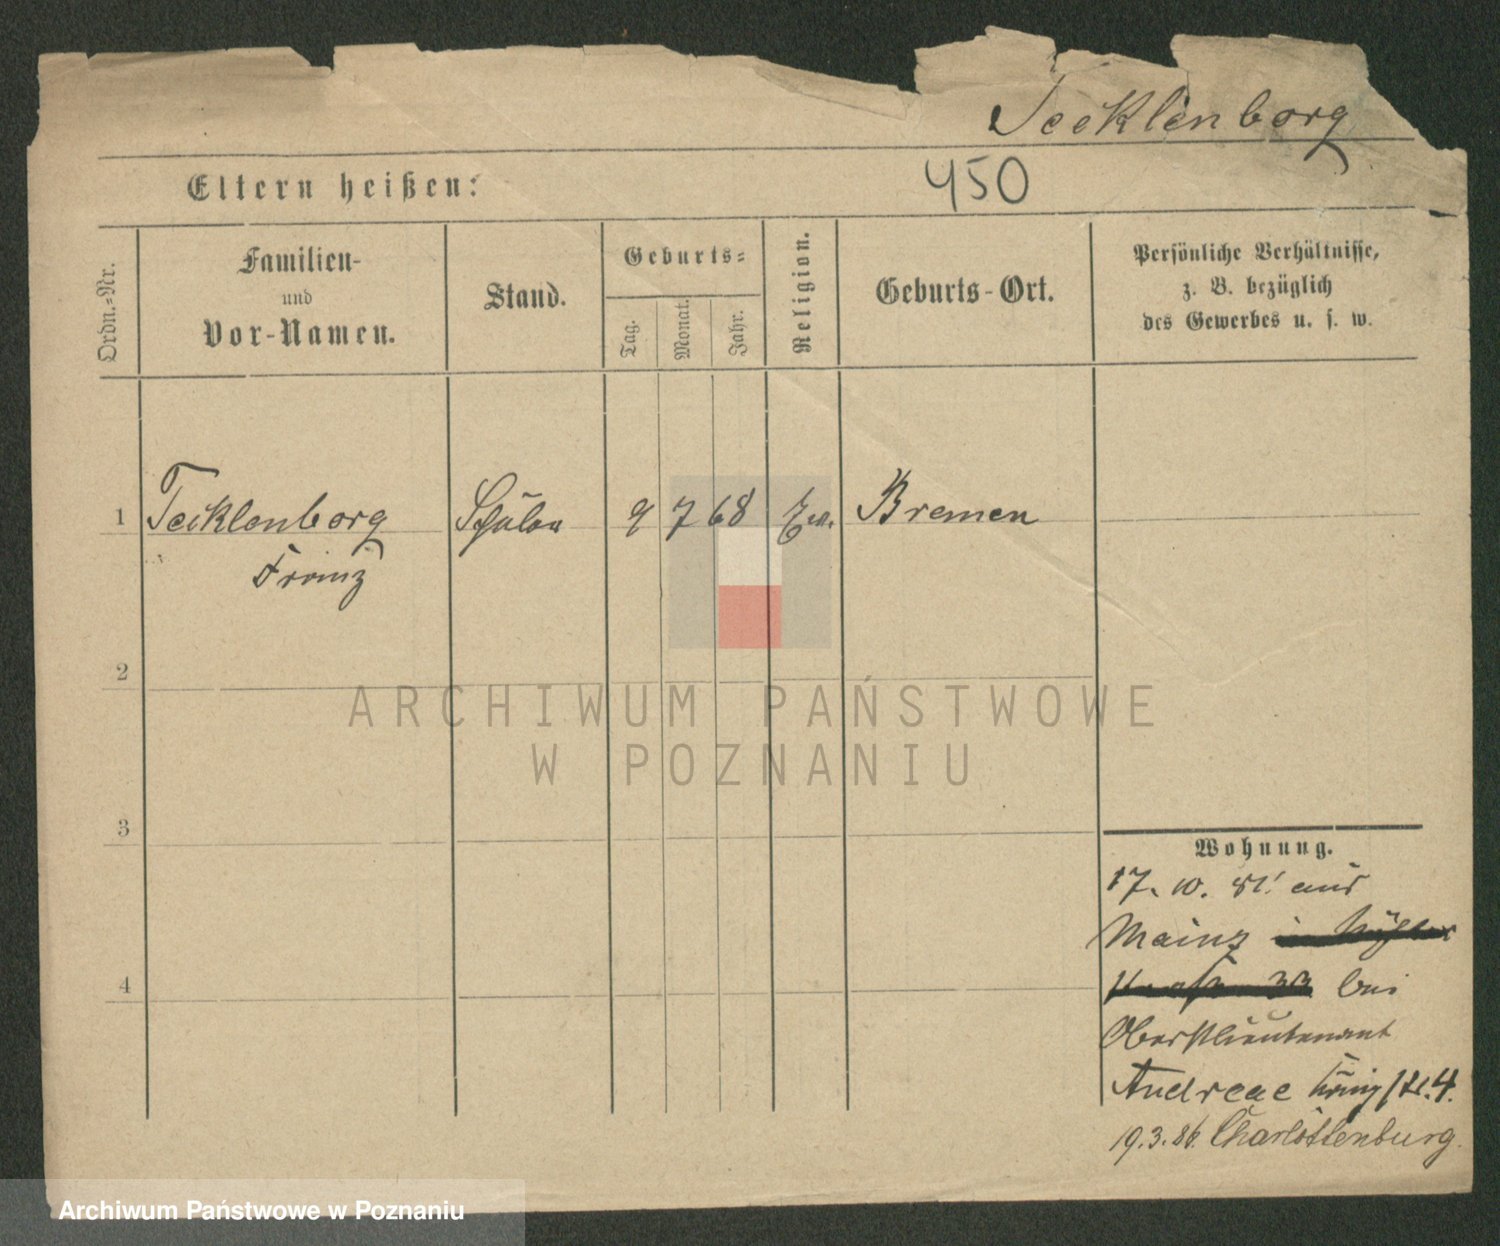 Tecklenborg
450
Eltern heißen:
Ordn.-Nr.
Familien-
und
Vor-Namen.
Stand.
Geburts-
Tag.
Monat.
Jahr.
Religion.
Geburts-Ort.
Persönliche Verhältnisse,
z. B. bezüglich
des Gewerbes u. s. w.
1 Tecklenborg Schüler 9 7 68 Ev. Bremen
Franz
2
ARCHIWUM PAŃSTWOWE
W POZNANIU
3
Wohnung.
17. 10. 81. aus
Mainz in
33 bei
4
Oberstlieutenant
Andreae König str. 4.
19.3.86. Charlottenburg.
Archiwum Państwowe w Poznaniu